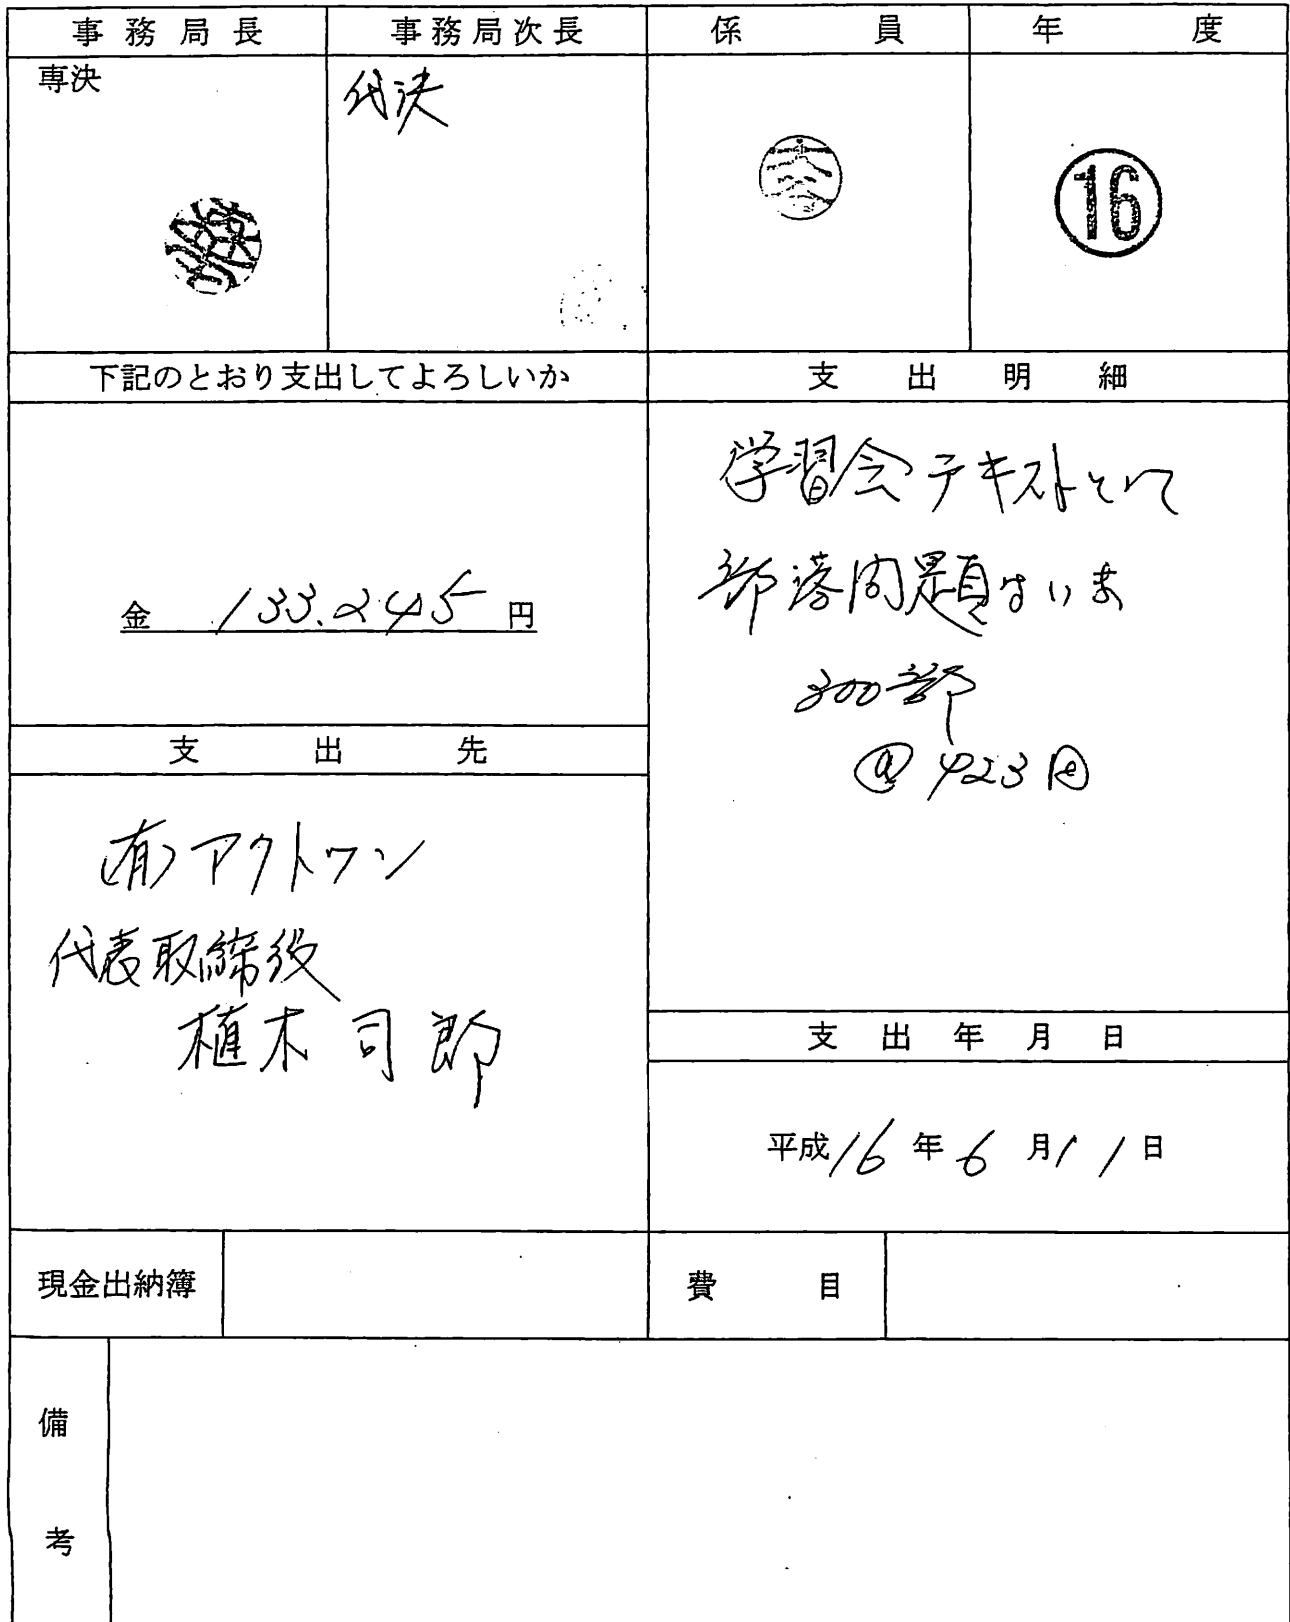 事務局長 事務局次長 係員 年度
専決 代決
16
下記のとおり支出してよろしいか
金 133.245 円
支出先
(有)アクトワン
代表取締役
植木司郎
支出明細
学習会テキストとして
部落問題はいま
300部
@423円
支出年月日
平成16年6月11日
現金出納簿
費目
備考